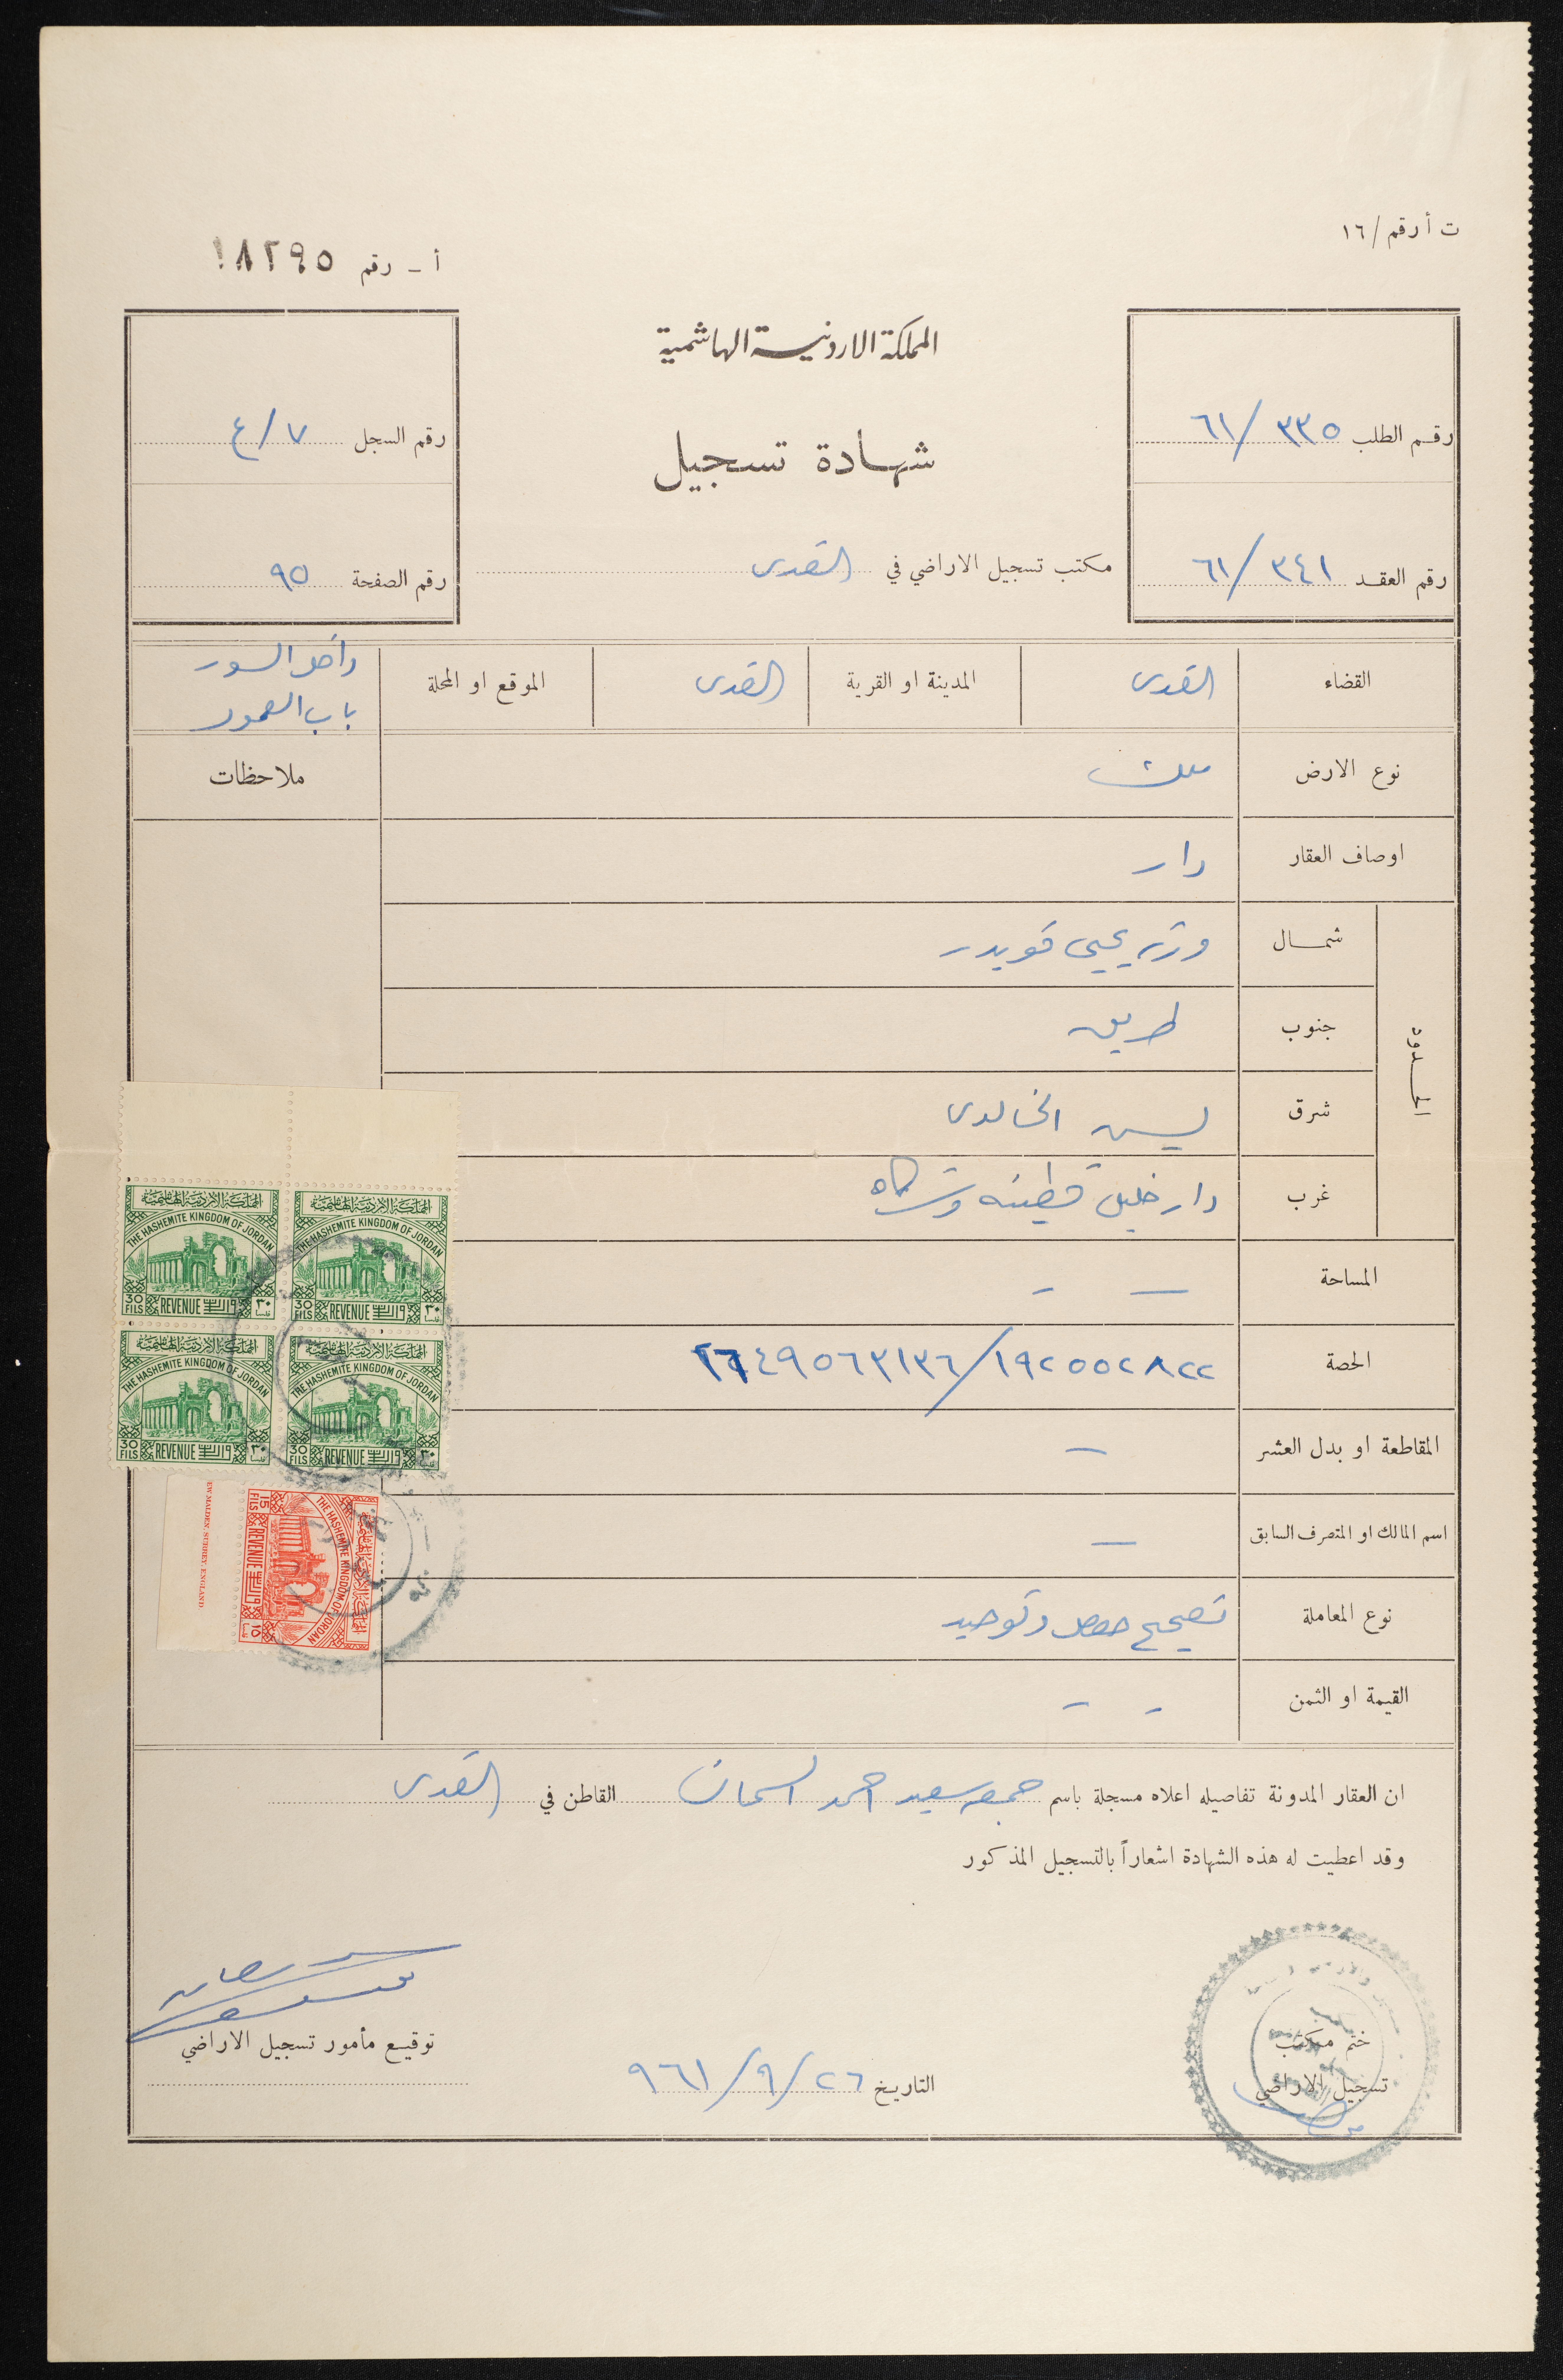 ت أ رقم / ١٦
أ - رقم ١٨٢٩٥
المملكة الاردنية الهاشمية
شهادة تسجيل
مكتب تسجيل الاراضي في القدس
رقم الطلب ٣٣٥ / ٦١
رقم العقد ٣٤١ / ٦١
رقم السجل ٧ / ٤
رقم الصفحة ٩٥
القضاء القدس المدينة او القرية القدس الموقع او المحلة داخل السور
باب العمود
نوع الارض ملك ملاحظات
اوصاف العقار دار
الحدود
شمال ورثة يحيى قويدر
جنوب طريق
شرق يسن الخالدي
غرب دار خليل قطينه وشركاه
المساحة — -
الحصة ١٩٢٥٥٢٨٢٢ / ٤٩٥٦٣١٣٦
المقاطعة او بدل العشر —
اسم المالك او المتصرف السابق —
نوع المعاملة تصحيح حصص وتوحيد
القيمة او الثمن - -
ان العقار المدونة تفاصيله اعلاه مسجلة باسم جمعه سعيد احمد السمان القاطن في القدس
وقد اعطيت له هذه الشهادة اشعاراً بالتسجيل المذكور
ختم مكتب
تسجيل الاراضي
التاريخ ٢٦ / ٩ / ٩٦١
توقيع مأمور تسجيل الاراضي
المملكة الاردنية الهاشمية
THE HASHEMITE KINGDOM OF JORDAN
30 FILS REVENUE واردات ٣٠ فلسا
المملكة الاردنية الهاشمية
THE HASHEMITE KINGDOM OF JORDAN
30 FILS REVENUE واردات ٣٠ فلسا
المملكة الاردنية الهاشمية
THE HASHEMITE KINGDOM OF JORDAN
30 FILS REVENUE واردات ٣٠ فلسا
المملكة الاردنية الهاشمية
THE HASHEMITE KINGDOM OF JORDAN
30 FILS REVENUE واردات ٣٠ فلسا
المملكة الاردنية الهاشمية
THE HASHEMITE KINGDOM OF JORDAN
15 FILS REVENUE واردات ١٥ فلسا
EW MALDEN, SURREY, ENGLAND